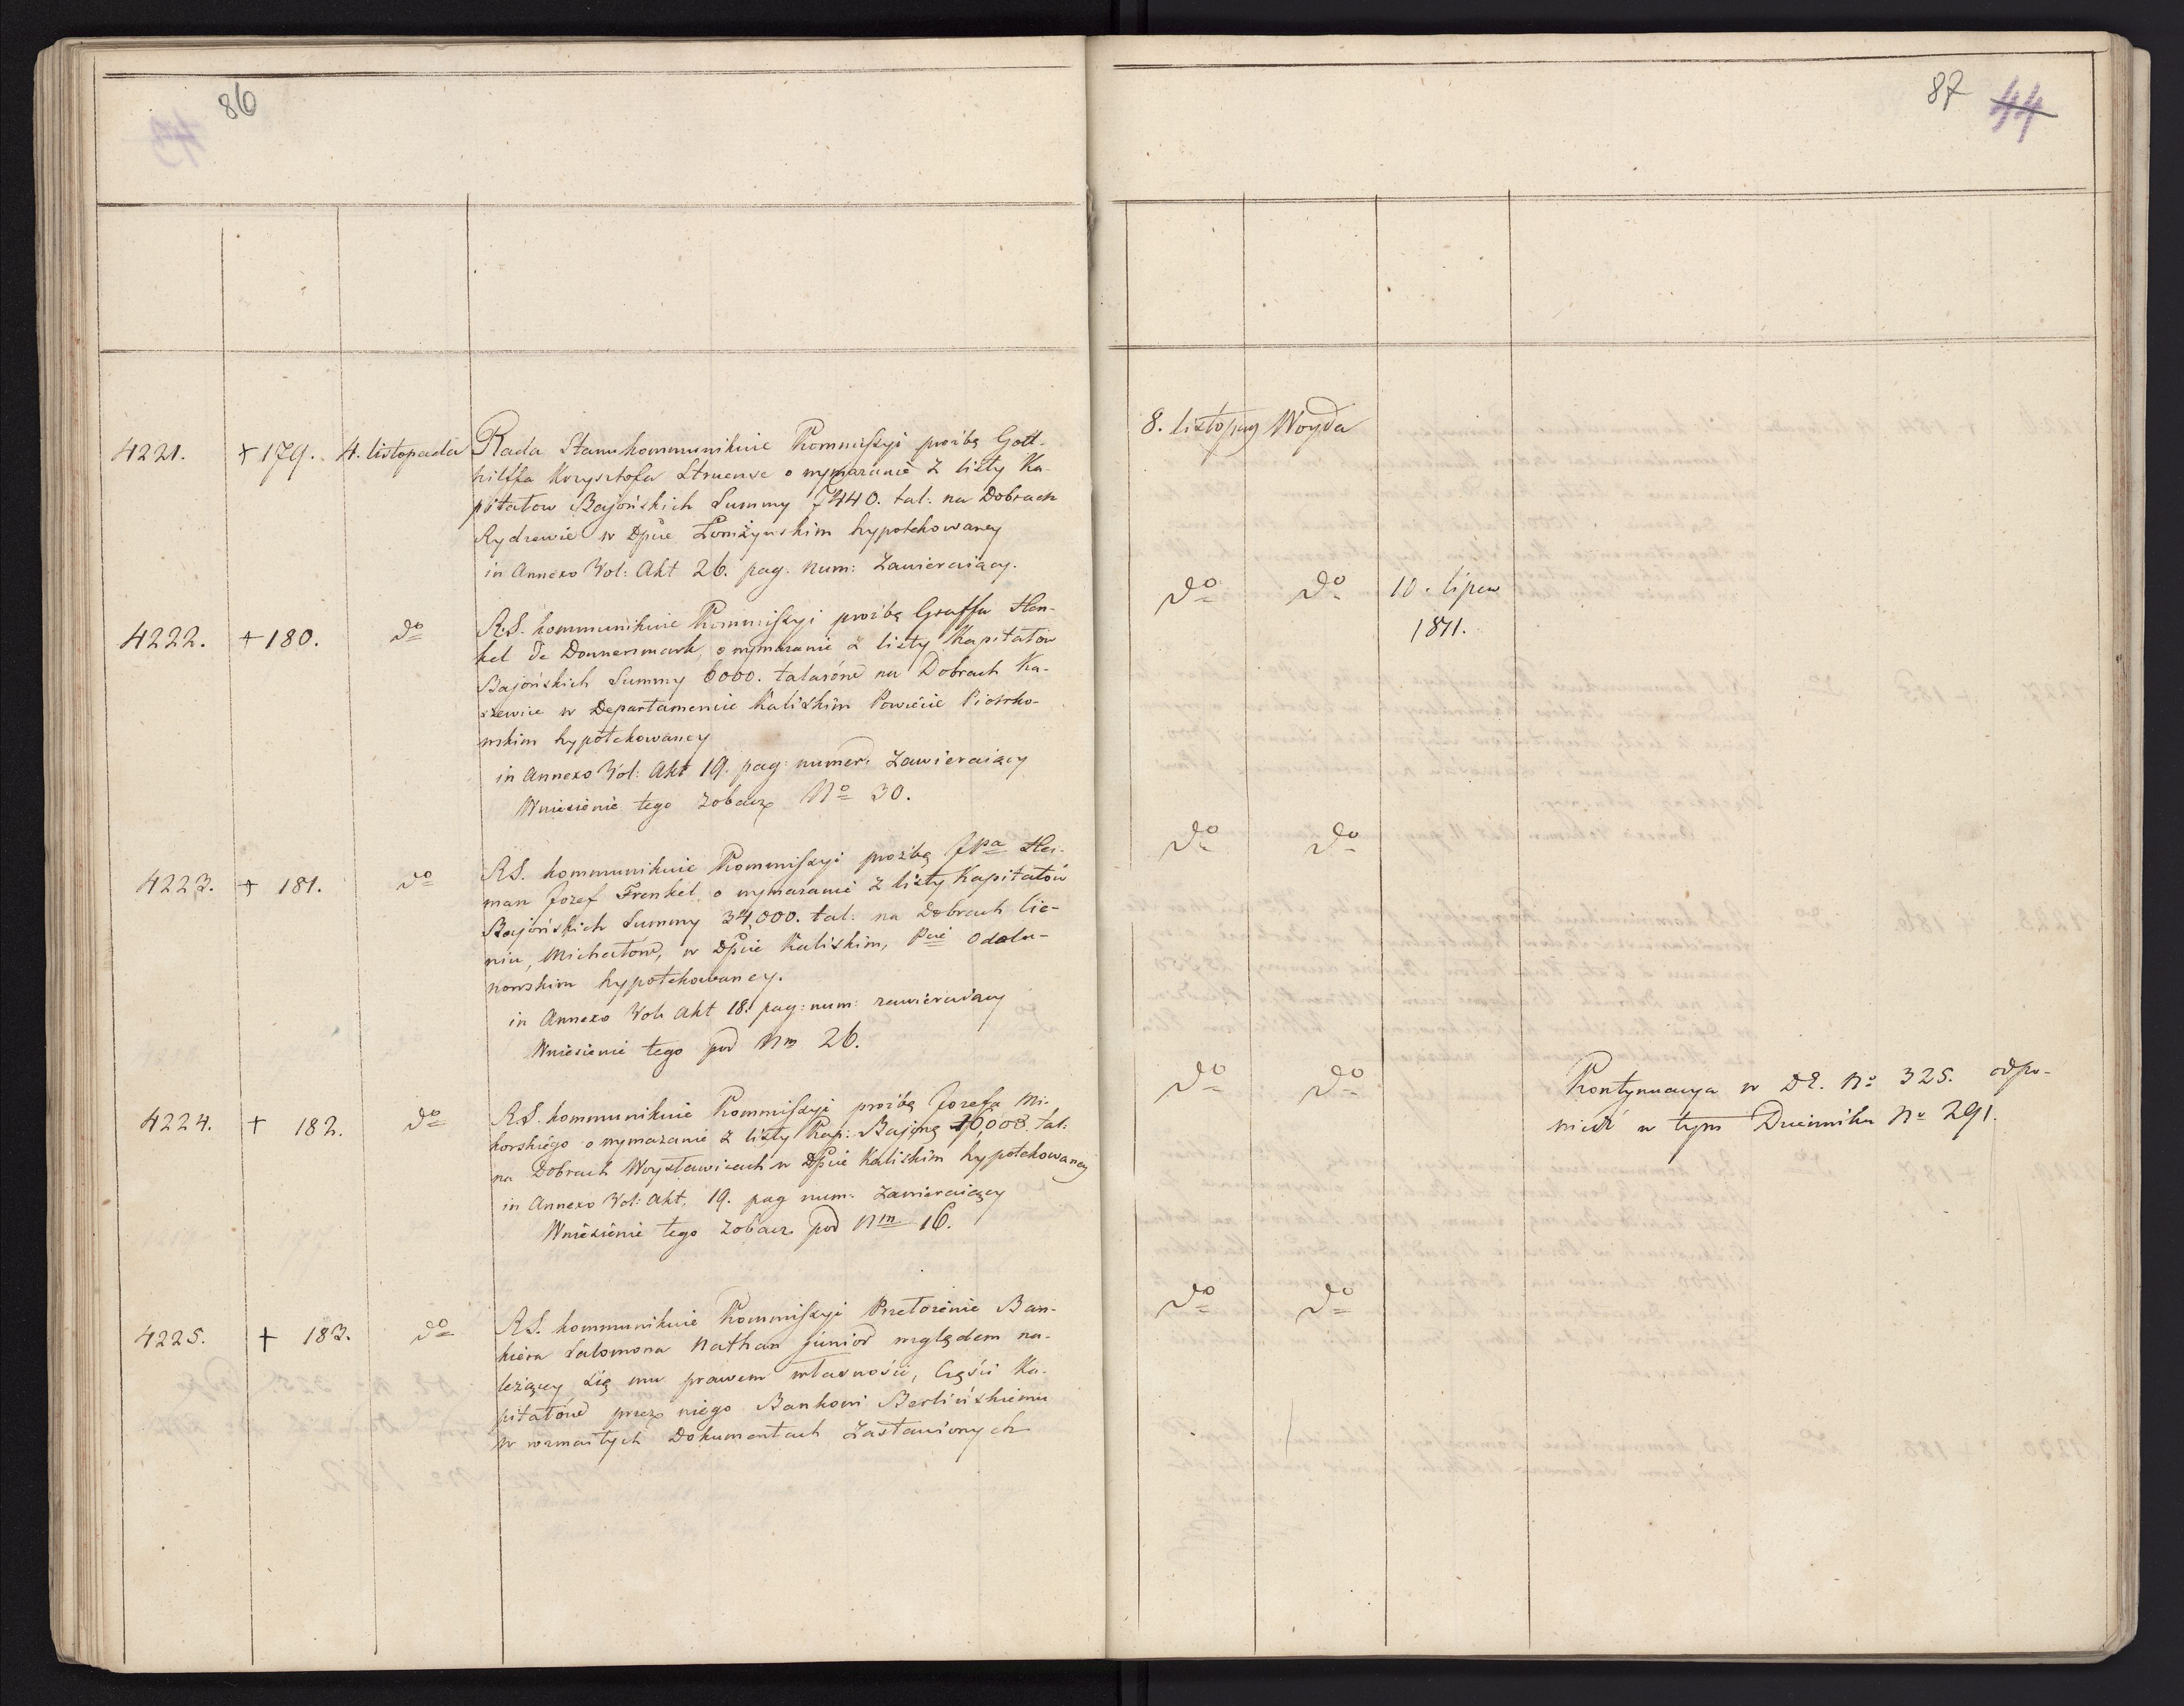 86
4221. + 179. 4. listopada Rada Stanu kommunikuie Kommissyi prożbę Gott-
hilffa Krzysztofa Struense o wymazanie z listy Ka-
pitałow Bajońskich Summy 7440. tal: na Dobrach
Rydzewie w Dpcie Łomżyńskim hypotekowaney
in Annexo Vol: Akt 26. pag. num: zawieraiący.
4222. + 180. do R.S. kommunikuie Kommissyi prożbę Graffa Hen-
kel de Donnersmark, o wymazanie z listy Kapitałów
Bajońskich Summy 6000. talarów na Dobrach Ka-
szewice w Departamencie Kaliskim Powiecie Piotrko-
wskim hypotekowaney
in Annexo Vol: Akt 19. pag: numer: zawieraiący
Wniesienie tego zobacz No 30.
4223. + 181. do R.S. kommunikuie Kommissyi prożbę JPa Her-
man Jozef Frenkel o wymazanie z listy Kapitałów
Bajońskich Summy 34,000. tal: na Dobrach Cie-
nia, Michałow, w Dpcie Kaliskim, Pcie Odola-
nowskim hypotekowaney.
in Annexo Vol. Akt 18. pag: num: zawieraiący
Wniesienie tego pod Nm 26.
4224. + 182. do R.S. kommunikuie Kommissyi prożbę Jozefa Mi-
korskiego o wymazanie z listy Kap: Bajonę 16008. tal:
na Dobrach Woysławicach w Dpcie Kaliskim hypotekowaney
in Annexo Vol: Akt. 19. pag num: zawieraiący
Wniesienie tego zobacz pod Nm 16.
4225. + 183. do R.S. kommunikuie Kommissyi Przełożenie Ban-
kiera Salomona Nathan junior względem na-
leżący się mu prawem własności, Części Ka-
pitałów przez niego Bankowi Berlińskiemu
w rozmaitych Dokumentach Zastawionych
87 44
8. listopad Woyda
do do 10. lipca
1811.
do do
do do Kontynuacya w DZ. No 325. odpo-
wiedź w tym Dzienniku No 291.
do do